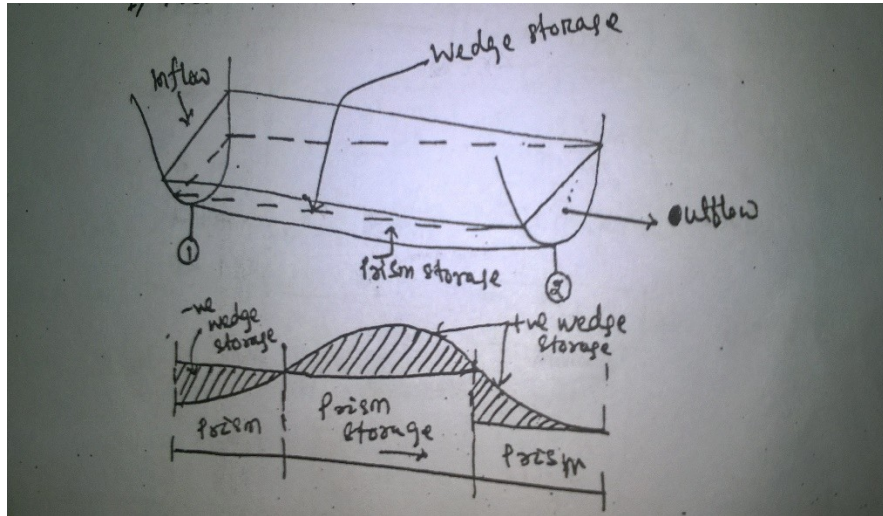 Wedge storage
Inflow
Outflow
Prism storage
1
2
-ve
wedge
storage
+ve wedge
storage
Prism
Prism
storage
Prism